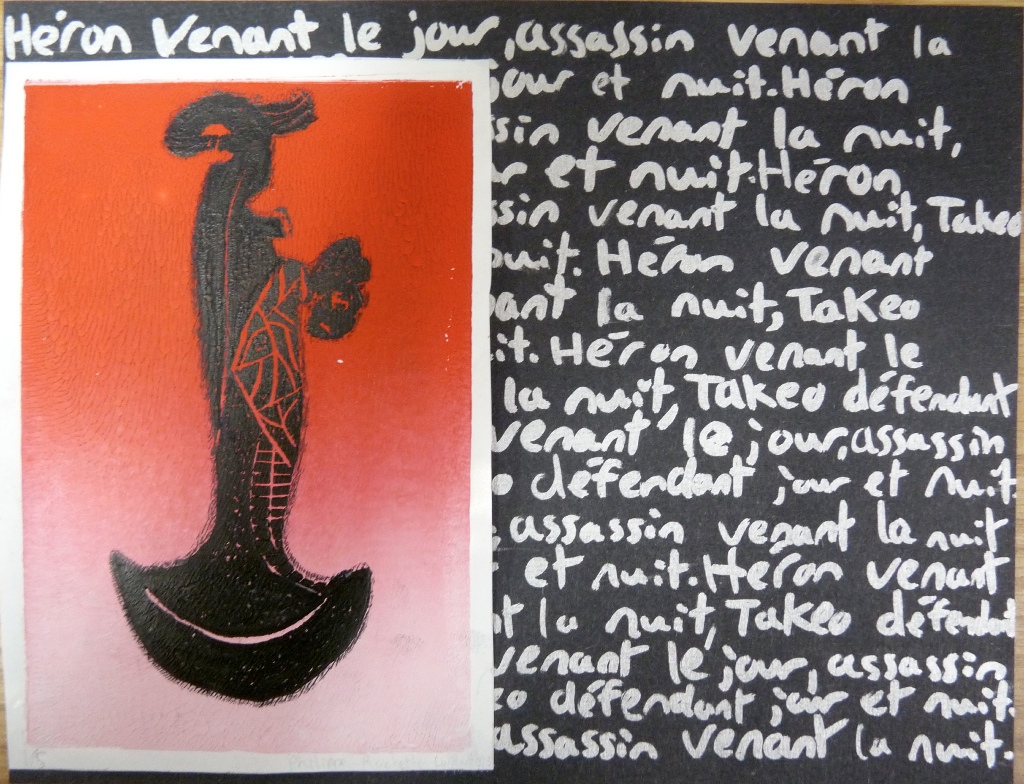 Héron Venant le jour, assassin venant la
jour et nuit. Héron
ssin venant la nuit,
r et nuit. Héron
ssin venant la nuit, Takeo
nuit. Héron venant
nant la nuit, Takeo
it. Héron venant le
la nuit, Takeo défendant
venant le jour, assassin
o défendant jour et nuit.
assassin venant la nuit
et nuit. Heron venant
nt la nuit, Takeo défendant
venant le jour, assassin
eo défendant jour et nuit.
assassin venant la nuit.